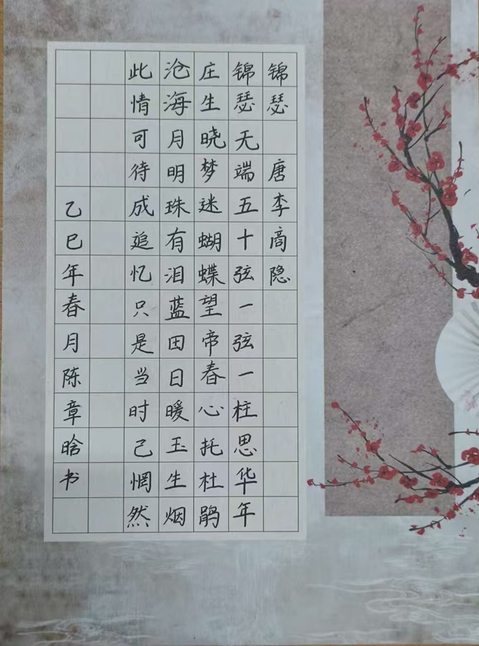 锦瑟 唐李商隐
锦瑟无端五十弦一弦一柱思华年
庄生晓梦迷蝴蝶望帝春心托杜鹃
沧海月明珠有泪蓝田日暖玉生烟
此情可待成追忆只是当时已惘然
乙巳年春月陈章晗书